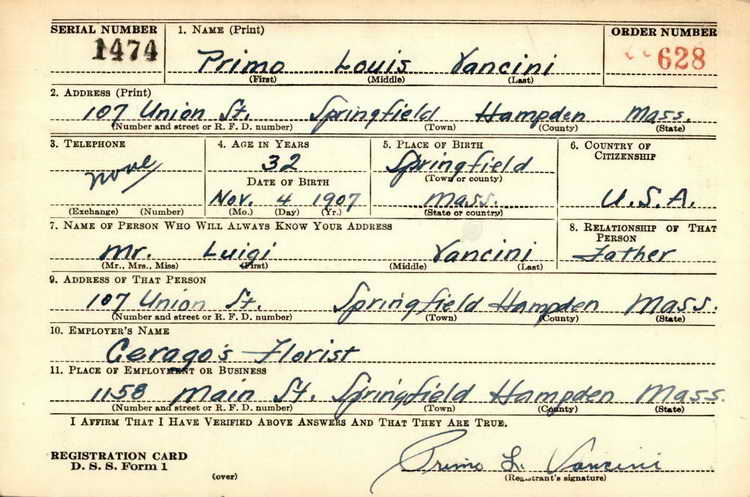 SERIAL NUMBER 1. NAME (Print) ORDER NUMBER
1474 Primo Louis Vancini 628
(First) (Middle) (Last)
2. ADDRESS (Print)
107 Union St. Springfield Hampden Mass.
(Number and street or R. F. D. number) (Town) (County) (State)
3. TELEPHONE 4. AGE IN YEARS 5. PLACE OF BIRTH 6. COUNTRY OF CITIZENSHIP
none 32 Springfield
DATE OF BIRTH (Town or county)
Nov. 4 1907 Mass. U.S.A.
(Exchange) (Number) (Mo.) (Day) (Yr.) (State or country)
7. NAME OF PERSON WHO WILL ALWAYS KNOW YOUR ADDRESS 8. RELATIONSHIP OF THAT PERSON
Mr. Luigi Vancini Father
(Mr., Mrs., Miss) (First) (Middle) (Last)
9. ADDRESS OF THAT PERSON
107 Union St. Springfield Hampden Mass.
(Number and street or R. F. D. number) (Town) (County) (State)
10. EMPLOYER'S NAME
Cerago's Florist
11. PLACE OF EMPLOYMENT OR BUSINESS
1158 Main St. Springfield Hampden Mass.
(Number and street or R. F. D. number) (Town) (County) (State)
I AFFIRM THAT I HAVE VERIFIED ABOVE ANSWERS AND THAT THEY ARE TRUE.
REGISTRATION CARD
D. S. S. Form 1 Primo L. Vancini
(over) (Registrant's signature)